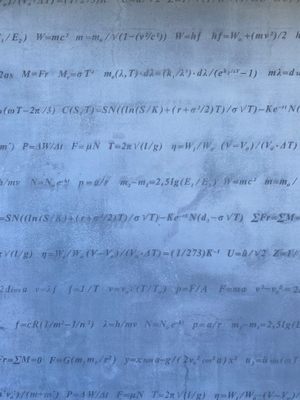 E₁/E₂) W=mc² m=mₒ/√(1-(v²/c²)) W=hf hf=Wₒ+(mv²)/2
2as M=Fr Mₑ=σT⁴ mₑ(λ,T)·dλ=(k₁/λ⁵)·dλ/(e^(k₂/λT)-1) mλ=d
(mT-2π/5) C(S,T)=SN((ln(S/K)+(r+σ²/2)T)/σ√T)-Ke⁻ʳᵀN(
P=ΔW/Δt F=μN T=2π√(l/g) η=W₁/Wₒ (V-Vₒ)/(Vₒ·ΔT)
h/mv N=Nₒe⁻ᵏʲ p=ū/r m₁-m₂=2,5lg(E₁/E₂) W=mc² m=mₒ/
=SN((ln(S/K)+(r+σ²/2)T)/σ√T)-Ke⁻ʳᵀN(d₁-σ√T) ΣFr=ΣM=
π√(l/g) η=W₁/Wₒ (V-Vₒ)/(Vₒ·ΔT)=(1/273)K⁻¹ U=û/√2 Z=1/
v=λf f=1/T v=vₒ√(T/Tₒ) p=F/A F=ma v²-vₒ²=2
f=cR(1/m²-1/n²) λ=h/mv N=Nₒe⁻ᵏʲ p=ū/r m₁-m₂=2,5lg(
Fr=ΣM=0 F=G(m₁m₂/r²) y=x tanα-g/(2vₒ²cos²α)x²
P=ΔW/Δt F=μN T=2π√(l/g) η=W₁/Wₒ (V-Vₒ)